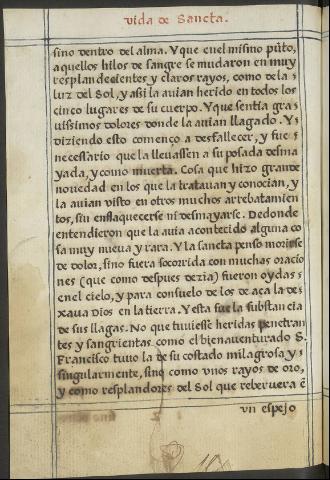 vida de Sancta.
sino dentro del alma. Y que en el mismo pũto,
aquellos hilos de sangre se mudaron en muy
resplandecientes y claros rayos, como de la s
luz del Sol, y assi la auian herido en todos los
cinco lugares de su cuerpo. Y que sentia gra s
uissimos dolores donde la auian llagado. Y s
diziendo esto començo a desfallecer, y fue s
necessario que la lleuassen a su posada desma
yada, y como muerta. Cosa que hizo grande
nouedad en los que la tratauan y conocian, y
la auian visto en otros muchos arrebatamien
tos, sin enflaquecerse ni desmayarse. De donde
entendieron que la auia acontecido alguna co
sa muy nueva y rara. Y la sancta penso morirse
de dolor, sino fuera socorrida con muchas oracio
nes (que como despues dezia) fueron oydas s
en el cielo, y para consuelo de los de aca la de s
xava Dios en la tierra. Y esta fue la substancia
de sus llagas. No que tuuiesse heridas penetran
tes y sangrientas como el bienauenturado S.
Francisco tuuo la de su costado milagrosa y s
singularmente, sino como unos rayos de oro,
y como resplandores del Sol que reberuera ẽ
vn espejo